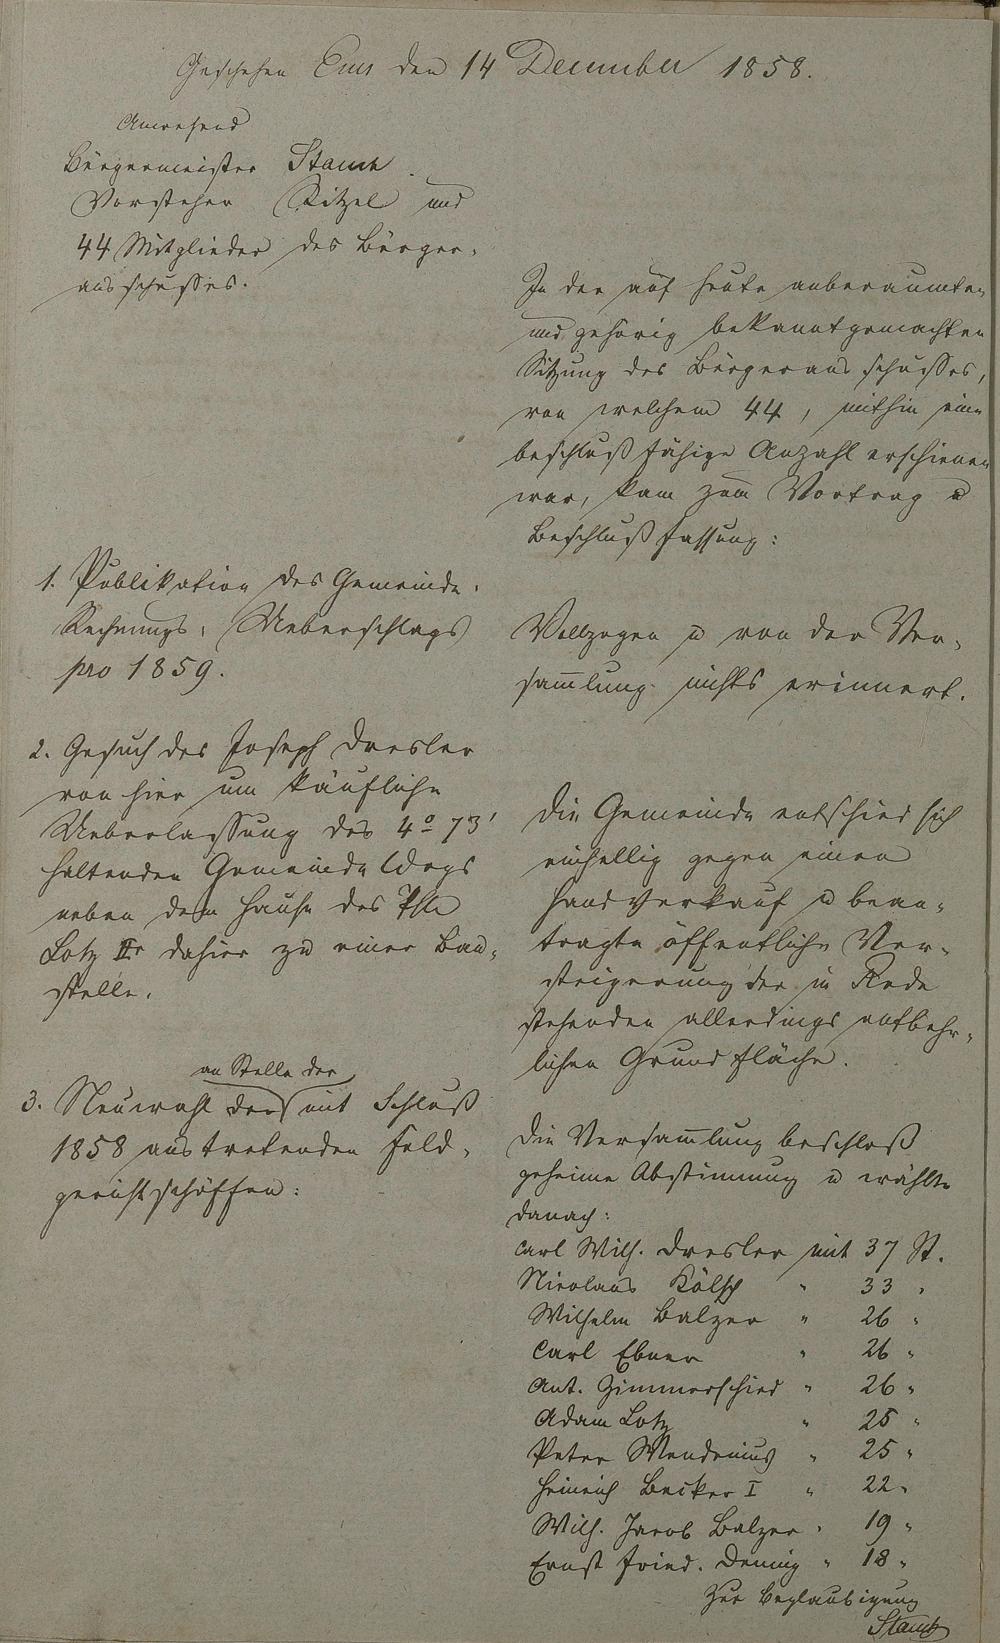 Geschehen Ems den 14 December 1858.
Anwesend
Bürgermeister Stamm
Vorsteher Kitzel und
44 Mitglieder des Bürger-
ausschusses.
In der auf heute anberaumten
und gehörig bekanntgemachten
Sitzung des Bürgerausschusses,
von welchem 44, mithin eine
beschlußfähige Anzahl erschienen
war, kam zum Vortrag u
Beschlußfassung:
1. Publikation des Gemeinde-
Rechnungs-Ueberschlags
pro 1859.
Vollzogen u von der Ver-
sammlung nichts erinnert.
2. Gesuch des Joseph Dresler
von hier um käufliche
Ueberlassung des 4° 73'
haltenden Gemeinde Wegs
neben dem Hause des Phil
Lotz IIr dahier zu einer Bau-
stelle.
Die Gemeinde entschied sich
einhellig gegen einen
Handverkauf u bean-
tragte öffentliche Ver-
steigerung der in Rede
stehenden allerdings entbehr-
lichen Grundfläche.
3. Neuwahl der an Stelle der mit Schluß
1858 austretenden Feld-
gerichtschöffen:
Die Versammlung beschloß
geheime Abstimmung u wählte
danach:
Carl Wilh. Dresler mit 37 St.
Nicolaus Kölsch " 33 "
Wilhelm Balzer " 26 "
Carl Ebner " 26 "
Ant. Zimmerschied " 26 "
Adam Lotz " 25 "
Peter Wendenius " 25 "
Heinrich Becker I " 22 "
Wilh. Jacob Balzer " 19 "
Ernst Fried. Dening " 18 "
Zur Beglaubigung
Stamm